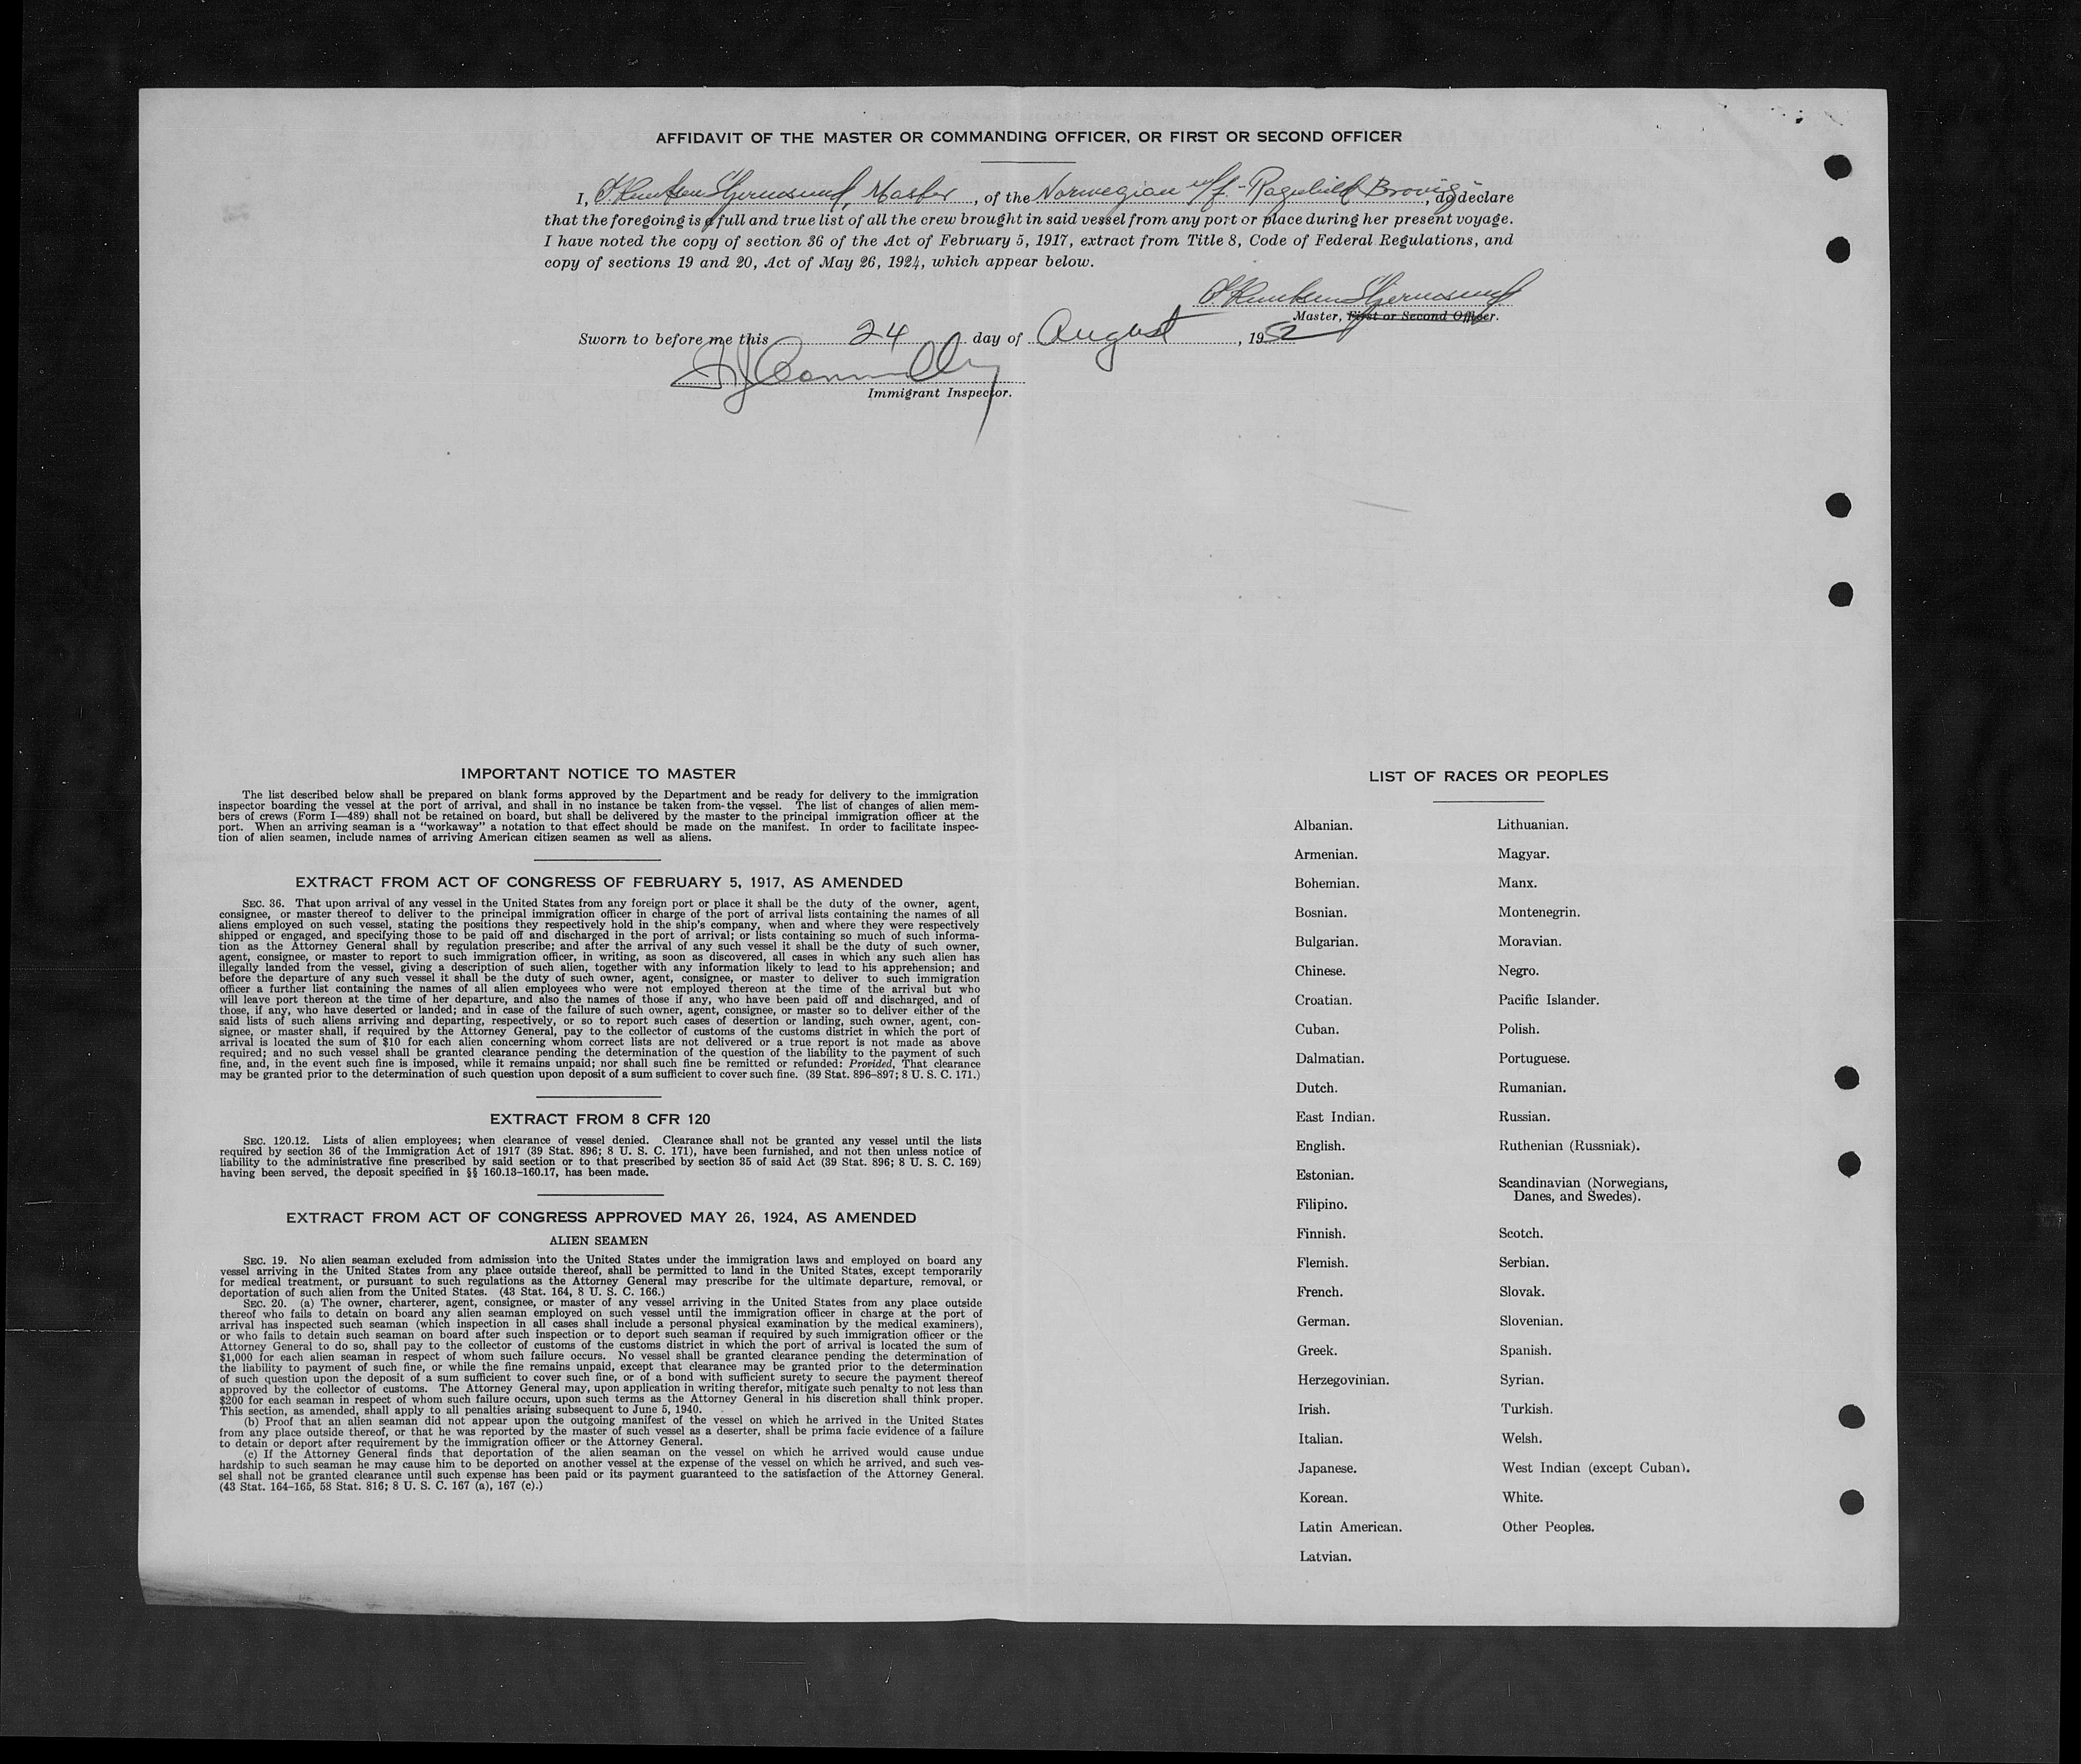 AFFIDAVIT OF THE MASTER OR COMMANDING OFFICER, OR FIRST OR SECOND OFFICER
I, Master, of the Norwegian Ragnhild Brovig, do declare
that the foregoing is a full and true list of all the crew brought in said vessel from any port or place during her present voyage.
I have noted the copy of section 36 of the Act of February 5, 1917, extract from Title 8, Code of Federal Regulations, and
copy of sections 19 and 20, Act of May 26, 1924, which appear below.
Master, First or Second Officer.
Sworn to before me this 24 day of August, 1952
Immigrant Inspector.
IMPORTANT NOTICE TO MASTER
The list described below shall be prepared on blank forms approved by the Department and be ready for delivery to the immigration
inspector boarding the vessel at the port of arrival, and shall in no instance be taken from the vessel. The list of changes of alien mem-
bers of crews (Form I—489) shall not be retained on board, but shall be delivered by the master to the principal immigration officer at the
port. When an arriving seaman is a "workaway" a notation to that effect should be made on the manifest. In order to facilitate inspec-
tion of alien seamen, include names of arriving American citizen seamen as well as aliens.
EXTRACT FROM ACT OF CONGRESS OF FEBRUARY 5, 1917, AS AMENDED
SEC. 36. That upon arrival of any vessel in the United States from any foreign port or place it shall be the duty of the owner, agent,
consignee, or master thereof to deliver to the principal immigration officer in charge of the port of arrival lists containing the names of all
aliens employed on such vessel, stating the positions they respectively hold in the ship's company, when and where they were respectively
shipped or engaged, and specifying those to be paid off and discharged in the port of arrival; or lists containing so much of such informa-
tion as the Attorney General shall by regulation prescribe; and after the arrival of any such vessel it shall be the duty of such owner,
agent, consignee, or master to report to such immigration officer, in writing, as soon as discovered, all cases in which any such alien has
illegally landed from the vessel, giving a description of such alien, together with any information likely to lead to his apprehension; and
before the departure of any such vessel it shall be the duty of such owner, agent, consignee, or master to deliver to such immigration
officer a further list containing the names of all alien employees who were not employed thereon at the time of the arrival but who
will leave port thereon at the time of her departure, and also the names of those if any, who have been paid off and discharged, and of
those, if any, who have deserted or landed; and in case of the failure of such owner, agent, consignee, or master so to deliver either of the
said lists of such aliens arriving and departing, respectively, or so to report such cases of desertion or landing, such owner, agent, con-
signee, or master shall, if required by the Attorney General, pay to the collector of customs of the customs district in which the port of
arrival is located the sum of $10 for each alien concerning whom correct lists are not delivered or a true report is not made as above
required; and no such vessel shall be granted clearance pending the determination of the question of the liability to the payment of such
fine, and, in the event such fine is imposed, while it remains unpaid; nor shall such fine be remitted or refunded: Provided, That clearance
may be granted prior to the determination of such question upon deposit of a sum sufficient to cover such fine. (39 Stat. 896-897; 8 U. S. C. 171.)
EXTRACT FROM 8 CFR 120
SEC. 120.12. Lists of alien employees; when clearance of vessel denied. Clearance shall not be granted any vessel until the lists
required by section 36 of the Immigration Act of 1917 (39 Stat. 896; 8 U. S. C. 171), have been furnished, and not then unless notice of
liability to the administrative fine prescribed by said section or to that prescribed by section 35 of said Act (39 Stat. 896; 8 U. S. C. 169)
having been served, the deposit specified in §§ 160.13-160.17, has been made.
EXTRACT FROM ACT OF CONGRESS APPROVED MAY 26, 1924, AS AMENDED
ALIEN SEAMEN
SEC. 19. No alien seaman excluded from admission into the United States under the immigration laws and employed on board any
vessel arriving in the United States from any place outside thereof, shall be permitted to land in the United States, except temporarily
for medical treatment, or pursuant to such regulations as the Attorney General may prescribe for the ultimate departure, removal, or
deportation of such alien from the United States. (43 Stat. 164, 8 U. S. C. 166.)
SEC. 20. (a) The owner, charterer, agent, consignee, or master of any vessel arriving in the United States from any place outside
thereof who fails to detain on board any alien seaman employed on such vessel until the immigration officer in charge at the port of
arrival has inspected such seaman (which inspection in all cases shall include a personal physical examination by the medical examiners),
or who fails to detain such seaman on board after such inspection or to deport such seaman if required by such immigration officer or the
Attorney General to do so, shall pay to the collector of customs of the customs district in which the port of arrival is located the sum of
$1,000 for each alien seaman in respect of whom such failure occurs. No vessel shall be granted clearance pending the determination of
the liability to payment of such fine, or while the fine remains unpaid, except that clearance may be granted prior to the determination
of such question upon the deposit of a sum sufficient to cover such fine, or of a bond with sufficient surety to secure the payment thereof
approved by the collector of customs. The Attorney General may, upon application in writing therefor, mitigate such penalty to not less than
$200 for each seaman in respect of whom such failure occurs, upon such terms as the Attorney General in his discretion shall think proper.
This section, as amended, shall apply to all penalties arising subsequent to June 5, 1940.
(b) Proof that an alien seaman did not appear upon the outgoing manifest of the vessel on which he arrived in the United States
from any place outside thereof, or that he was reported by the master of such vessel as a deserter, shall be prima facie evidence of a failure
to detain or deport after requirement by the immigration officer or the Attorney General.
(c) If the Attorney General finds that deportation of the alien seaman on the vessel on which he arrived would cause undue
hardship to such seaman he may cause him to be deported on another vessel at the expense of the vessel on which he arrived, and such ves-
sel shall not be granted clearance until such expense has been paid or its payment guaranteed to the satisfaction of the Attorney General.
(43 Stat. 164-165, 58 Stat. 816; 8 U. S. C. 167 (a), 167 (c).)
LIST OF RACES OR PEOPLES
Albanian.
Armenian.
Bohemian.
Bosnian.
Bulgarian.
Chinese.
Croatian.
Cuban.
Dalmatian.
Dutch.
East Indian.
English.
Estonian.
Filipino.
Finnish.
Flemish.
French.
German.
Greek.
Herzegovinian.
Irish.
Italian.
Japanese.
Korean.
Latin American.
Latvian.
Lithuanian.
Magyar.
Manx.
Montenegrin.
Moravian.
Negro.
Pacific Islander.
Polish.
Portuguese.
Rumanian.
Russian.
Ruthenian (Russniak).
Scandinavian (Norwegians,
Danes, and Swedes).
Scotch.
Serbian.
Slovak.
Slovenian.
Spanish.
Syrian.
Turkish.
Welsh.
West Indian (except Cuban).
White.
Other Peoples.